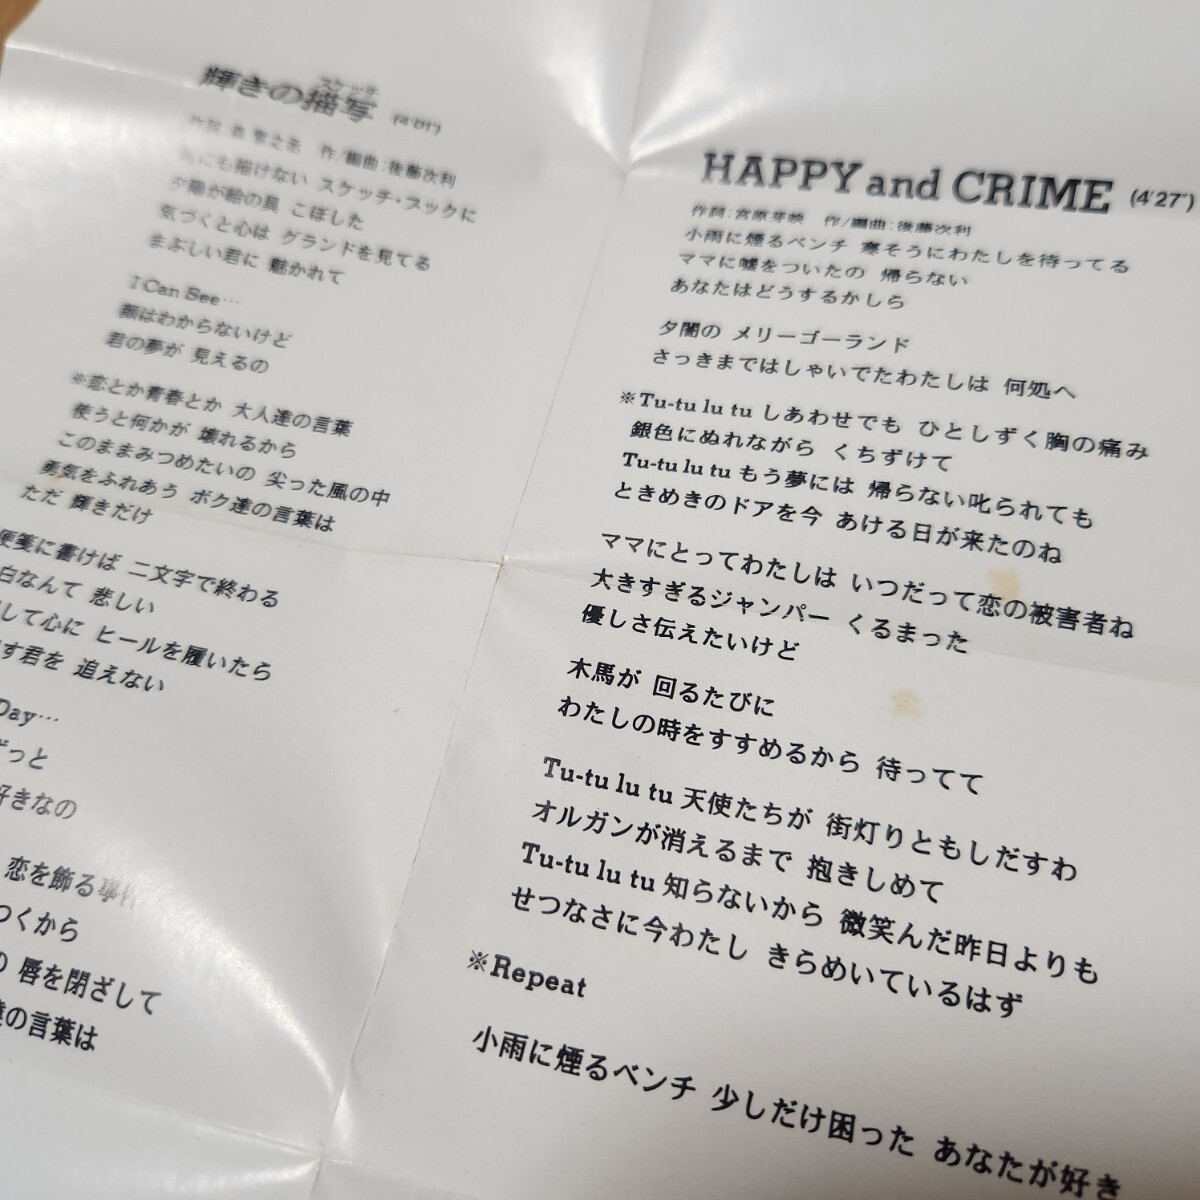 輝きの描写 (4'01")
スケッチ
作/編曲:後藤次利
にも描けない スケッチ・ブックに
夕陽が絵の具 こぼした
気づくと心は グランドを見てる
まぶしい君に 魅かれて
I Can See…
顔はわからないけど
君の夢が 見えるの
※恋とか青春とか 大人達の言葉
使うと何かが 壊れるから
このままみつめたいの 尖った風の中
勇気をふれあう ボク達の言葉は
ただ 輝きだけ
便箋に書けば 二文字で終わる
白なんて 悲しい
して心に ヒールを履いたら
す君を 追えない
Day…
ずっと
好きなの
恋を飾る事件
つくから
の 唇を閉ざして
達の言葉は
HAPPY and CRIME (4'27")
作詞:宮原芽映 作/編曲:後藤次利
小雨に煙るベンチ 寒そうにわたしを待ってる
ママに嘘をついたの 帰らない
あなたはどうするかしら
夕闇の メリーゴーランド
さっきまではしゃいでたわたしは 何処へ
※Tu-tu lu tu しあわせでも ひとしずく胸の痛み
銀色にぬれながら くちずけて
Tu-tu lu tu もう夢には 帰らない叱られても
ときめきのドアを今 あける日が来たのね
ママにとってわたしは いつだって恋の被害者ね
大きすぎるジャンパー くるまった
優しさ伝えたいけど
木馬が 回るたびに
わたしの時をすすめるから 待ってて
Tu-tu lu tu 天使たちが 街灯りともしだすわ
オルガンが消えるまで 抱きしめて
Tu-tu lu tu 知らないから 微笑んだ昨日よりも
せつなさに今わたし きらめいているはず
※Repeat
小雨に煙るベンチ 少しだけ困った あなたが好き